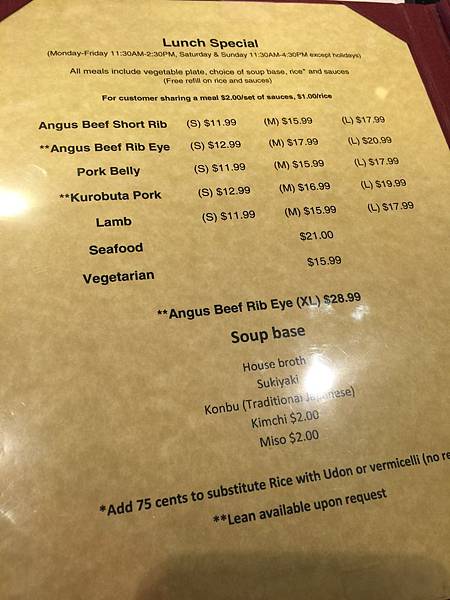 Lunch Special
(Monday-Friday 11:30AM-2:30PM, Saturday & Sunday 11:30AM-4:30PM except holidays)
All meals include vegetable plate, choice of soup base, rice* and sauces
(Free refill on rice and sauces)
For customer sharing a meal $2.00/set of sauces, $1.00/rice
Angus Beef Short Rib (S) $11.99 (M) $15.99 (L) $17.99
**Angus Beef Rib Eye (S) $12.99 (M) $17.99 (L) $20.99
Pork Belly (S) $11.99 (M) $15.99 (L) $17.99
**Kurobuta Pork (S) $12.99 (M) $16.99 (L) $19.99
Lamb (S) $11.99 (M) $15.99 (L) $17.99
Seafood $21.00
Vegetarian $15.99
**Angus Beef Rib Eye (XL) $28.99
Soup base
House broth
Sukiyaki
Konbu (Traditional Japanese)
Kimchi $2.00
Miso $2.00
*Add 75 cents to substitute Rice with Udon or vermicelli (no
**Lean available upon request